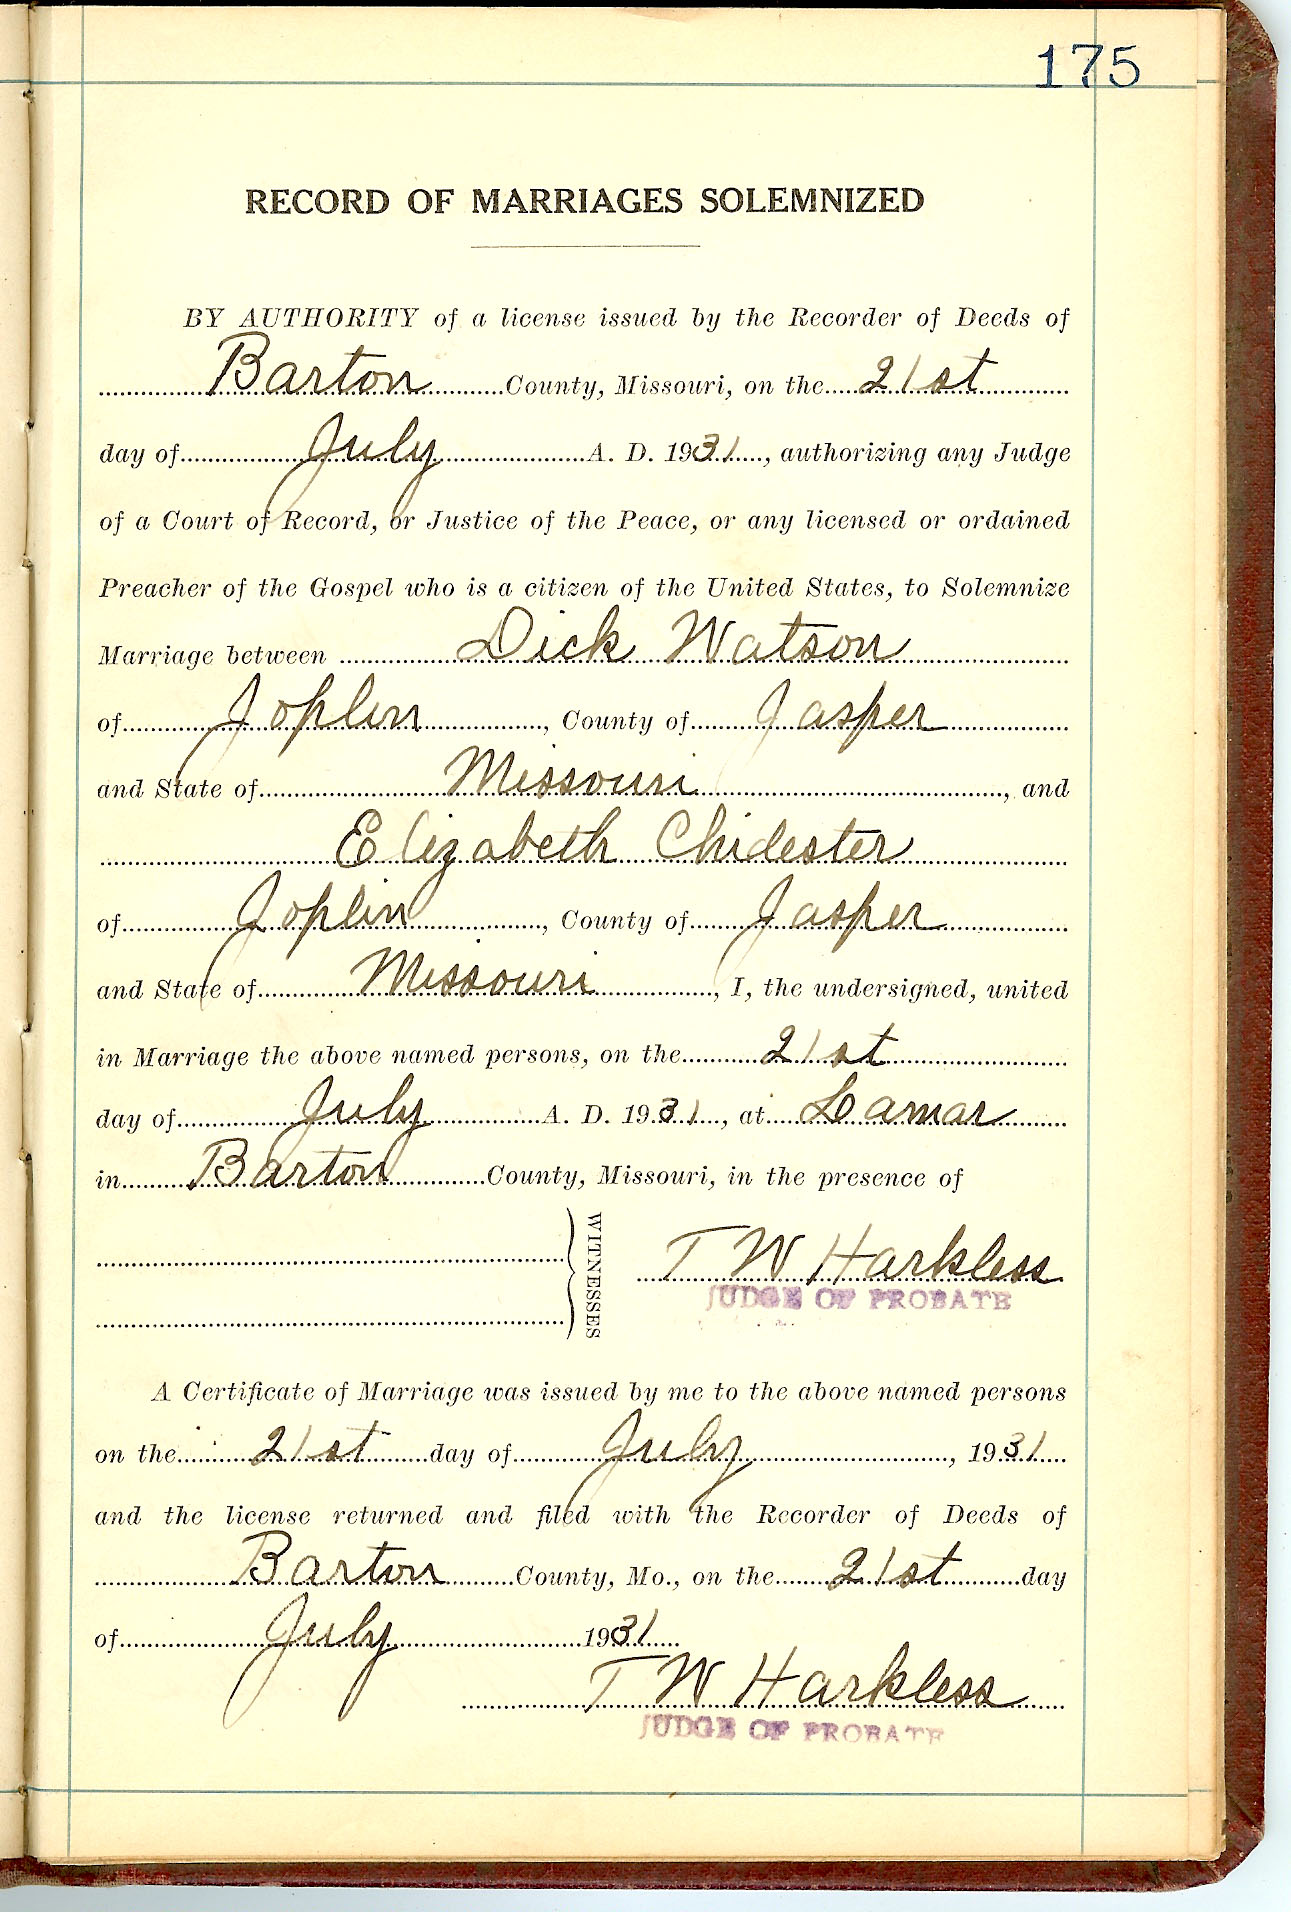 175
RECORD OF MARRIAGES SOLEMNIZED
BY AUTHORITY of a license issued by the Recorder of Deeds of
Barton County, Missouri, on the 21st
day of July A. D. 1931, authorizing any Judge
of a Court of Record, or Justice of the Peace, or any licensed or ordained
Preacher of the Gospel who is a citizen of the United States, to Solemnize
Marriage between Dick Watson
of Joplin, County of Jasper
and State of Missouri, and
Elizabeth Chidester
of Joplin, County of Jasper
and State of Missouri, I, the undersigned, united
in Marriage the above named persons, on the 21st
day of July A. D. 1931, at Lamar
in Barton County, Missouri, in the presence of
WITNESSES
T W Harkless
JUDGE OF PROBATE
A Certificate of Marriage was issued by me to the above named persons
on the 21st day of July, 1931
and the license returned and filed with the Recorder of Deeds of
Barton County, Mo., on the 21st day
of July 1931
T W Harkless
JUDGE OF PROBATE